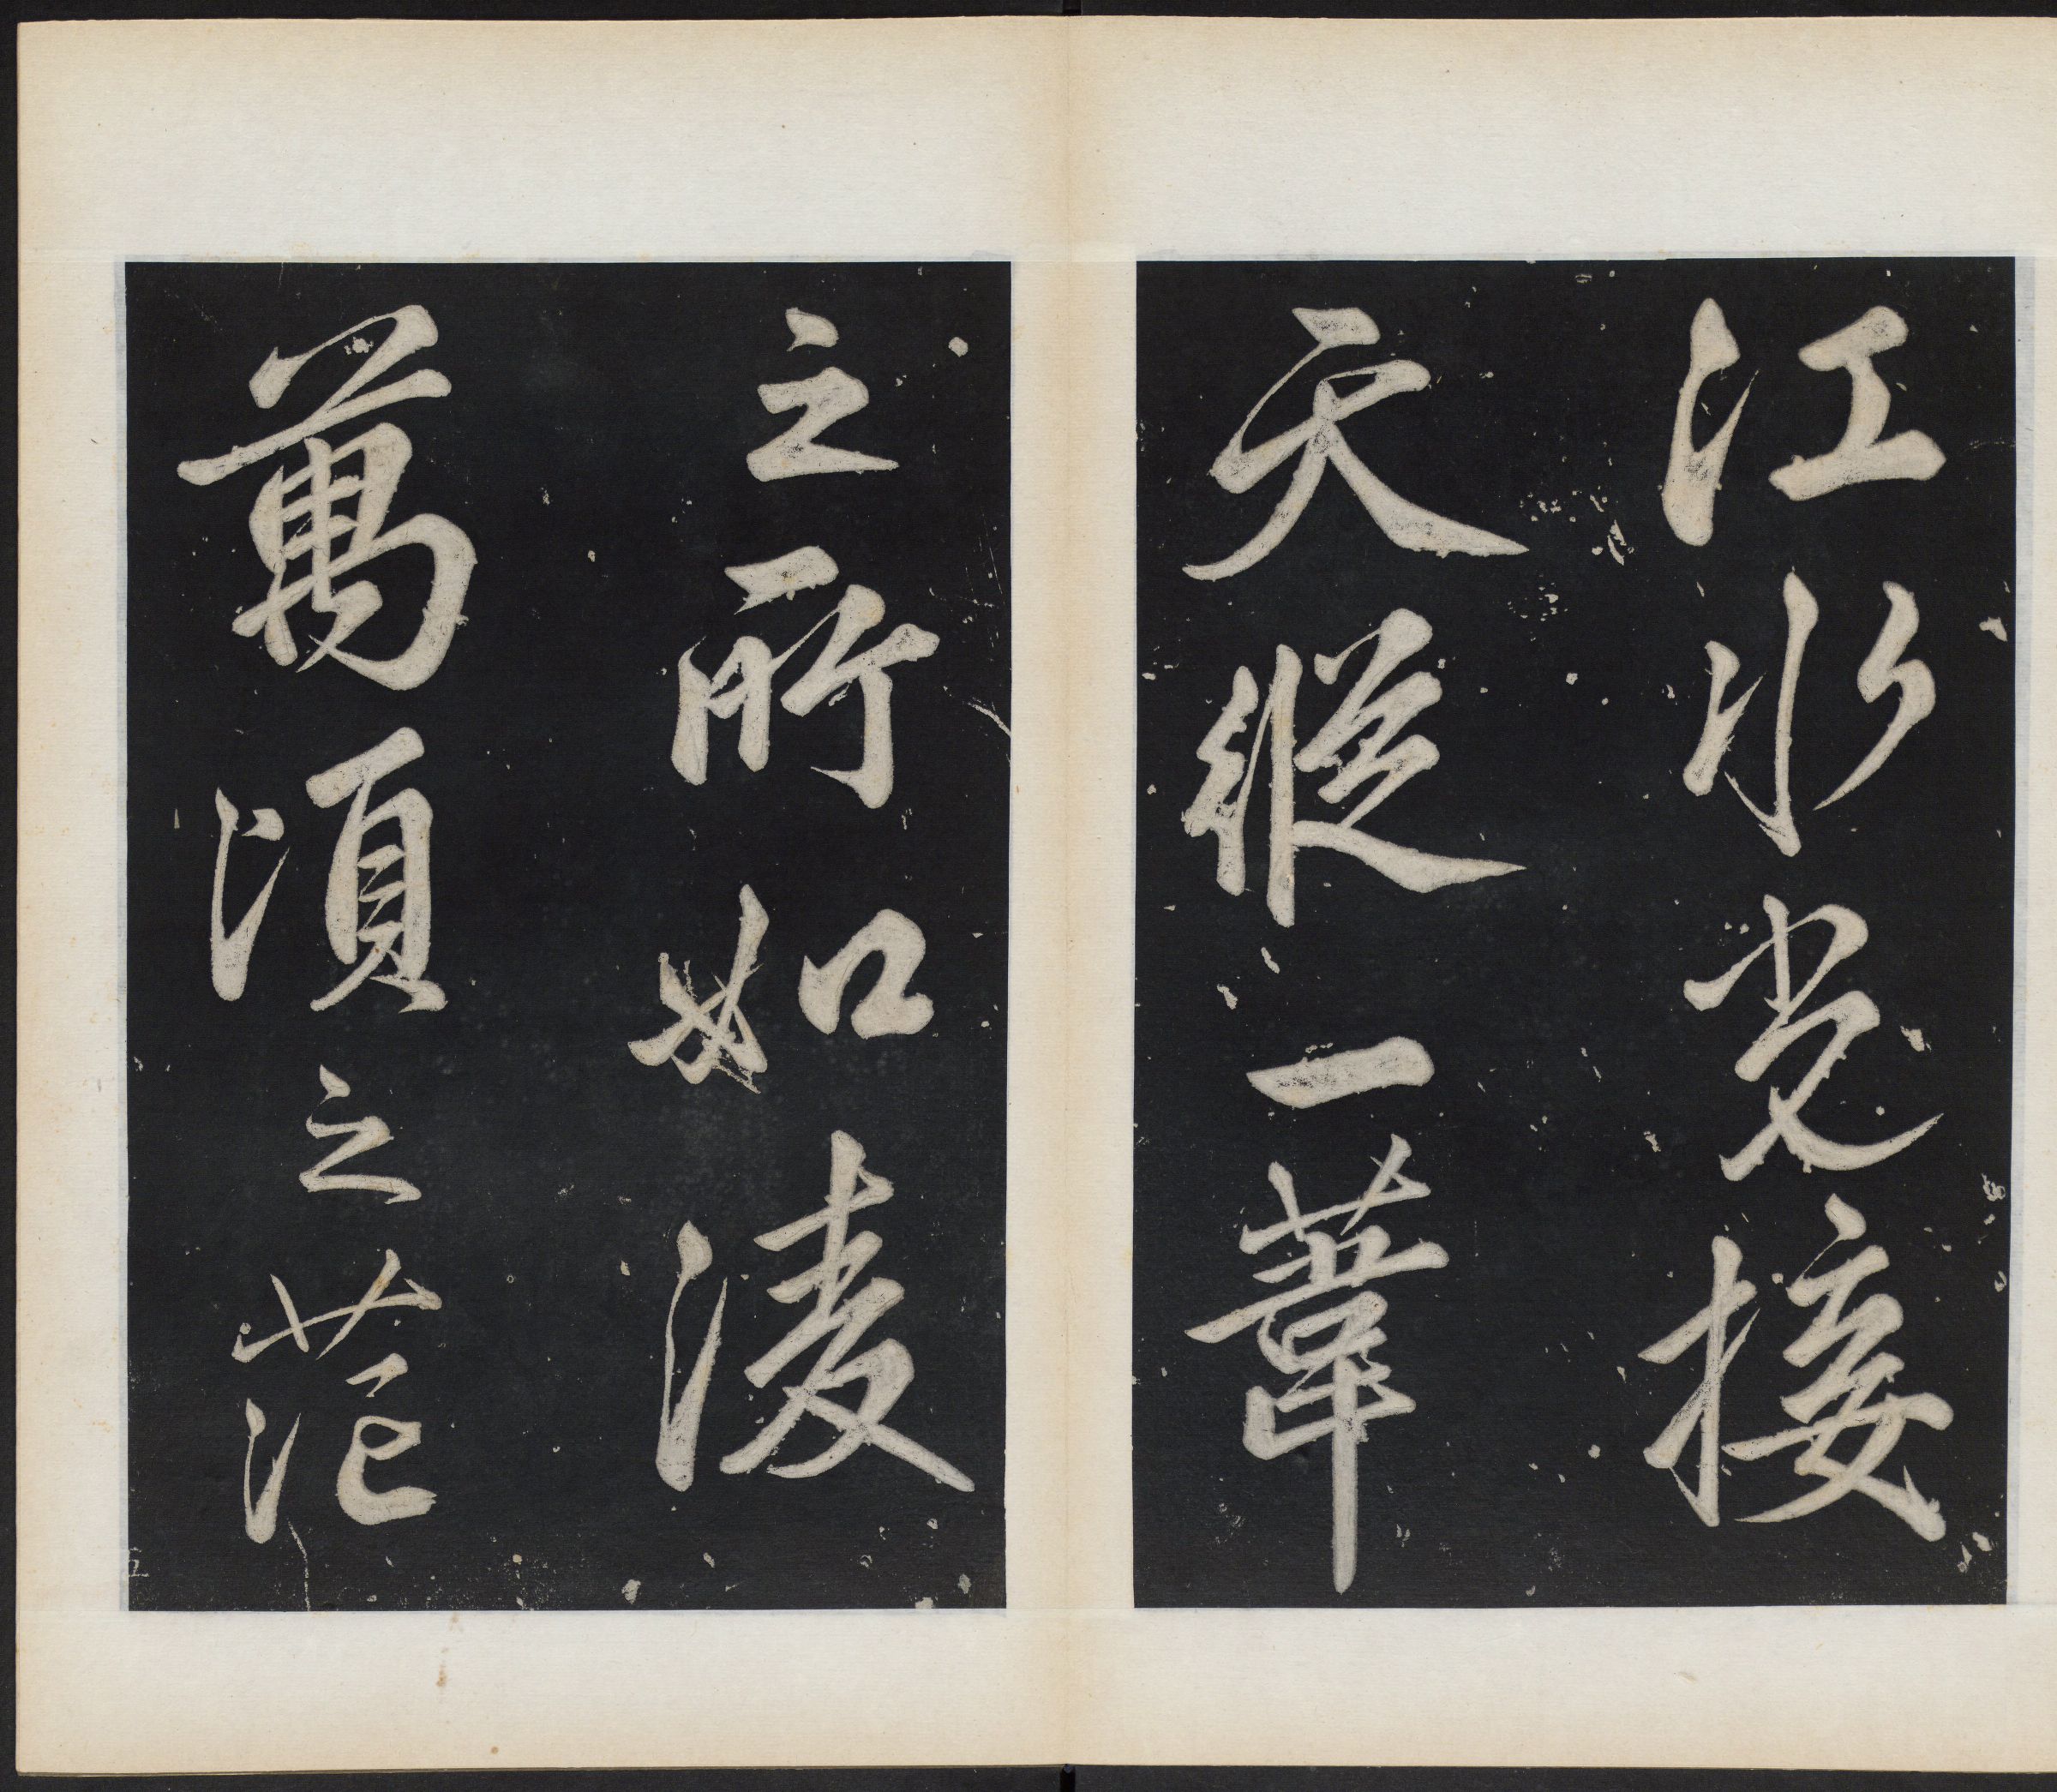 江水光接
天縱一葦
之所如淩
萬頃之茫
五